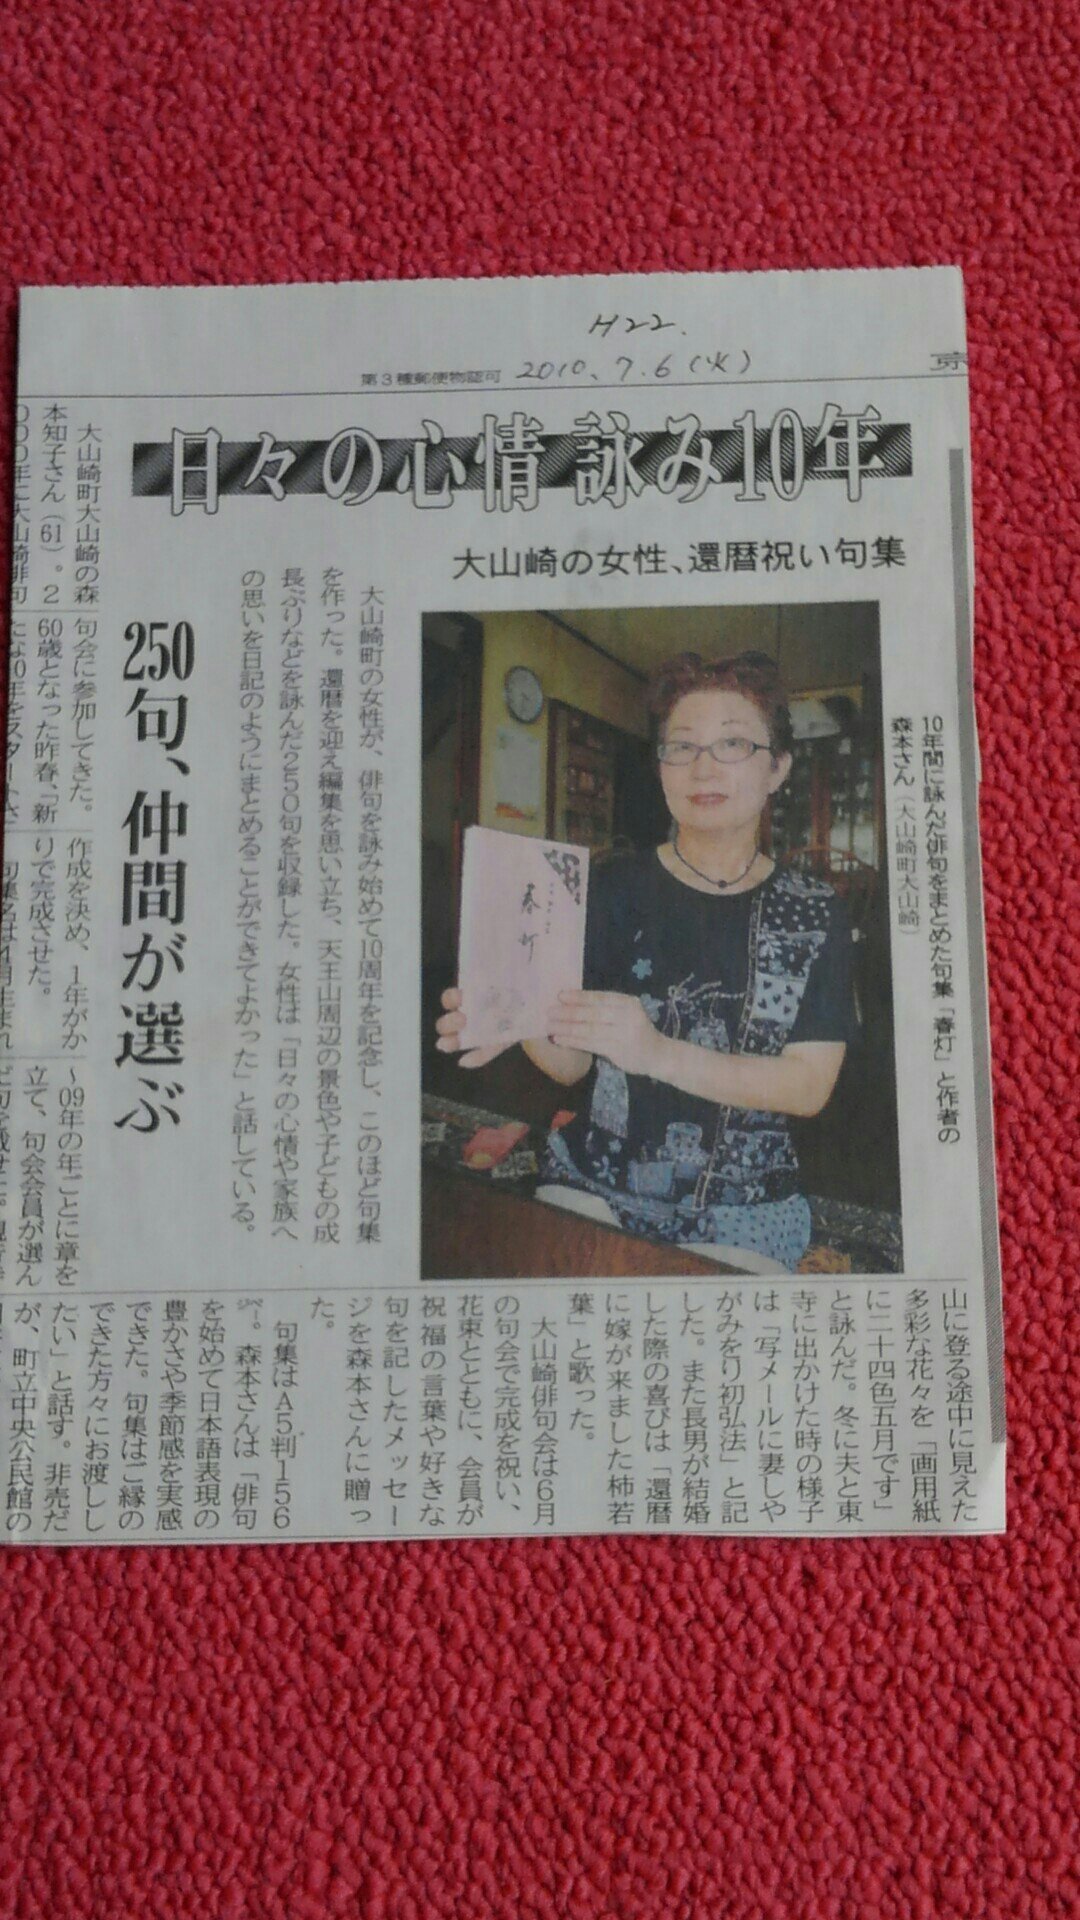 H22.
第3種郵便物認可 2010.7.6(火)
京
日々の心情 詠み10年
大山崎の女性、還暦祝い句集
250句、仲間が選ぶ
大山崎町の女性が、俳句を詠み始めて10周年を記念し、このほど句集
を作った。還暦を迎え編集を思い立ち、天王山周辺の景色や子どもの成
長ぶりなどを詠んだ250句を収録した。女性は「日々の心情や家族へ
の思いを日記のようにまとめることができてよかった」と話している。
10年間に詠んだ俳句をまとめた句集「春灯」と作者の
森本さん(大山崎町大山崎)
春灯
大山崎町大山崎の森
本知子さん(61)。2
000年に大山崎俳句
句会に参加してきた。
60歳となった昨春、「新
たな10年をスタートさ
作成を決め、1年がか
りで完成させた。
句集名は4月生まれ
〜09年の年ごとに章を
立て、句会会員が選ん
山に登る途中に見えた
多彩な花々を「画用紙
に二十四色五月です」
と詠んだ。冬に夫と東
寺に出かけた時の様子
は「写メールに妻しや
がみをり初弘法」と記
した。また長男が結婚
した際の喜びは「還暦
に嫁が来ました柿若
葉」と歌った。
大山崎俳句会は6月
の句会で完成を祝い、
花束とともに、会員が
祝福の言葉や好きな
句を記したメッセー
ジを森本さんに贈っ
た。
句集はA5判156
㌻。森本さんは「俳句
を始めて日本語表現の
豊かさや季節感を実感
できた。句集はご縁の
できた方々にお渡しし
たい」と話す。非売だ
が、町立中央公民館の